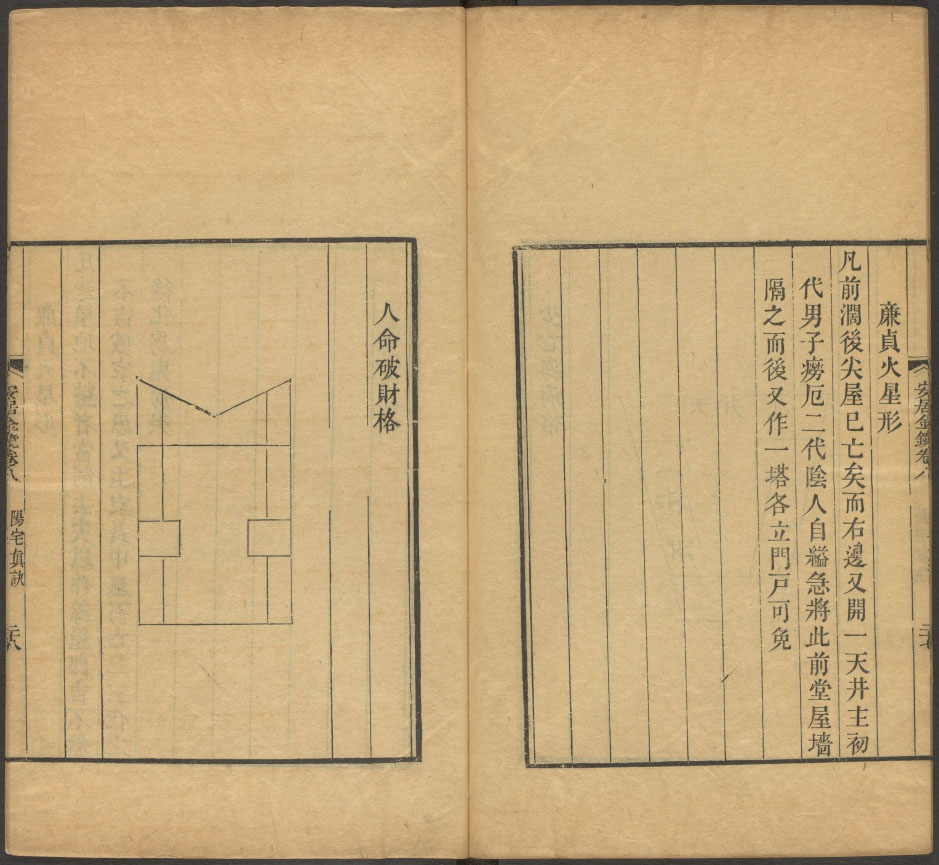 安居金鏡卷八
廉貞火星形
凡前濶後尖屋已亡矣而右邊又開一天井主初
代男子癆厄二代陰人自縊急將此前堂屋墻
隔之而後又作一塔各立門戸可免
人命破財格
安居金鏡卷八
陽宅眞訣
二十八